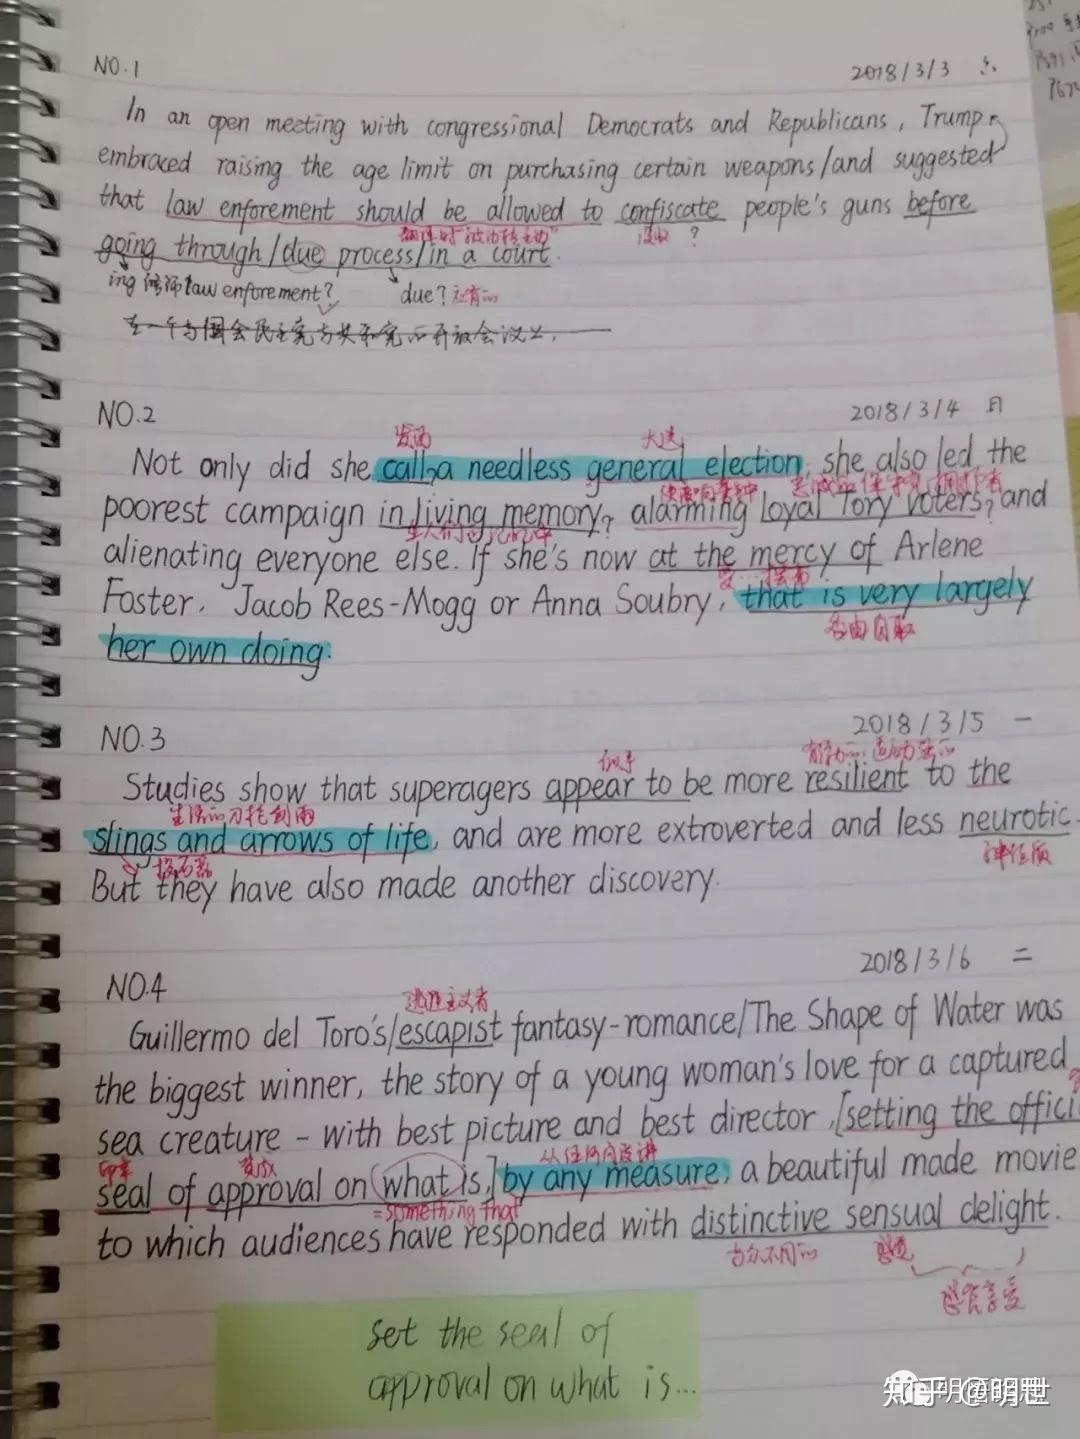 NO.1 2018/3/3 六
In an open meeting with congressional Democrats and Republicans, Trump
embraced raising the age limit on purchasing certain weapons/and suggested
that law enforement should be allowed to confiscate people's guns before
翻译时"被动转主动" 没收 ?
going through/due process/in a court.
ing 修饰 law enforement? due?
在一个与国会民主党与共和党 公开会议上,
NO.2 2018/3/4 日
发动 大选
Not only did she call a needless general election, she also led the
poorest campaign in living memory? alarming loyal Tory voters? and
alienating everyone else. If she's now at the mercy of Arlene
Foster, Jacob Rees-Mogg or Anna Soubry, that is very largely
咎由自取
her own doing.
NO.3 2018/3/5 一
似乎
Studies show that superagers appear to be more resilient to the
slings and arrows of life, and are more extroverted and less neurotic.
投石器 神经质
But they have also made another discovery.
NO.4 2018/3/6 二
逃避主义者
Guillermo del Toro's/escapist fantasy-romance/The Shape of Water was
the biggest winner, the story of a young woman's love for a captured
sea creature – with best picture and best director, [setting the offici
印章 赞成 从任何角度讲
seal of approval on (what is,] by any measure, a beautiful made movie
=something that
to which audiences have responded with distinctive sensual delight.
与众不同的 感官
感官享受
set the seal of
approval on what is...
知乎 @明世